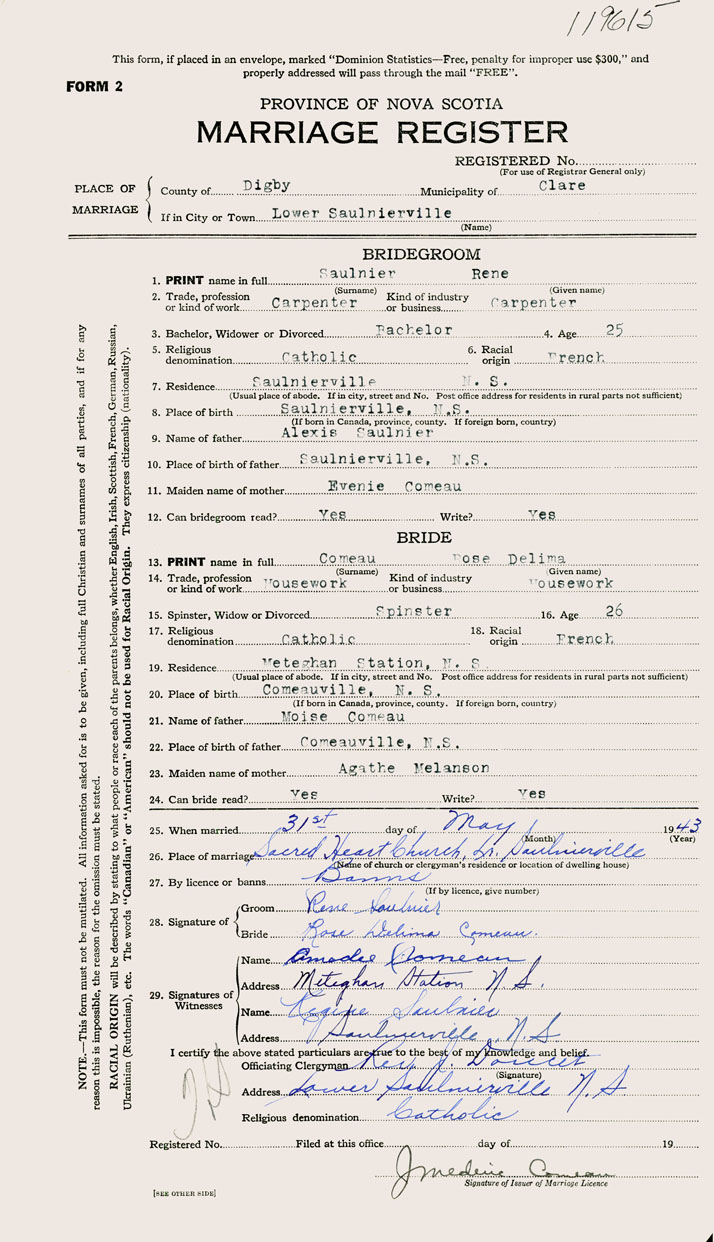 119615
This form, if placed in an envelope, marked "Dominion Statistics—Free, penalty for improper use $300," and
properly addressed will pass through the mail "FREE".
FORM 2
PROVINCE OF NOVA SCOTIA
MARRIAGE REGISTER
REGISTERED No.
(For use of Registrar General only)
PLACE OF MARRIAGE
County of Digby Municipality of Clare
If in City or Town Lower Saulnierville
(Name)
BRIDEGROOM
1. PRINT name in full Saulnier Rene
(Surname) (Given name)
2. Trade, profession or kind of work Carpenter Kind of industry or business Carpenter
3. Bachelor, Widower or Divorced Bachelor 4. Age 25
5. Religious denomination Catholic 6. Racial origin French
7. Residence Saulnierville N. S.
(Usual place of abode. If in city, street and No. Post office address for residents in rural parts not sufficient)
8. Place of birth Saulnierville, N.S.
(If born in Canada, province, county. If foreign born, country)
9. Name of father Alexis Saulnier
10. Place of birth of father Saulnierville, N.S.
11. Maiden name of mother Evenie Comeau
12. Can bridegroom read? Yes Write? Yes
BRIDE
13. PRINT name in full Comeau Rose Delima
(Surname) (Given name)
14. Trade, profession or kind of work Housework Kind of industry or business Housework
15. Spinster, Widow or Divorced Spinster 16. Age 26
17. Religious denomination Catholic 18. Racial origin French
19. Residence Meteghan Station, N. S
(Usual place of abode. If in city, street and No. Post office address for residents in rural parts not sufficient)
20. Place of birth Comeauville, N. S.
(If born in Canada, province, county. If foreign born, country)
21. Name of father Moise Comeau
22. Place of birth of father Comeauville, N.S.
23. Maiden name of mother Agathe Melanson
24. Can bride read? Yes Write? Yes
25. When married 31st day of May 1943
(Month) (Year)
26. Place of marriage Sacred Heart Church, L. Saulnierville
(Name of church or clergyman's residence or location of dwelling house)
27. By licence or banns Banns
(If by licence, give number)
28. Signature of
Groom Rene Saulnier
Bride Rose Delima Comeau.
29. Signatures of Witnesses
Name Amedee Comeau
Address Meteghan Station N S.
Name Regine Saulnier
Address Saulnierville, N. S
I certify the above stated particulars are true to the best of my knowledge and belief.
Officiating Clergyman Rev J. Doucet
(Signature)
Address Lower Saulnierville N. S
Religious denomination Catholic
Registered No. Filed at this office day of 19
J Mederic Comeau
Signature of Issuer of Marriage Licence
[SEE OTHER SIDE]
NOTE.—This form must not be mutilated. All information asked for is to be given, including full Christian and surnames of all parties, and if for any
reason this is impossible, the reason for the omission must be stated.
RACIAL ORIGIN will be described by stating to what people or race each of the parents belongs, whether English, Irish, Scottish, French, German, Russian,
Ukrainian (Ruthenian), etc. The words "Canadian" or "American" should not be used for Racial Origin. They express citizenship (nationality).